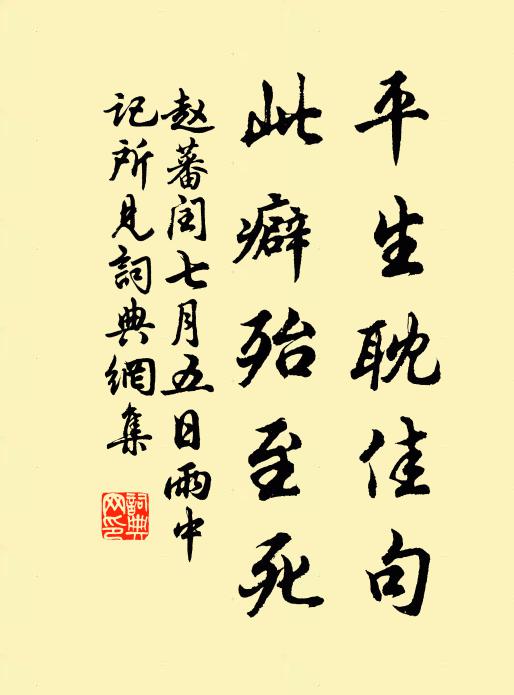 平生耽佳句
此癖殆至死
赵蕃闰七月五日雨中
记所见詞典網集
詞典網印